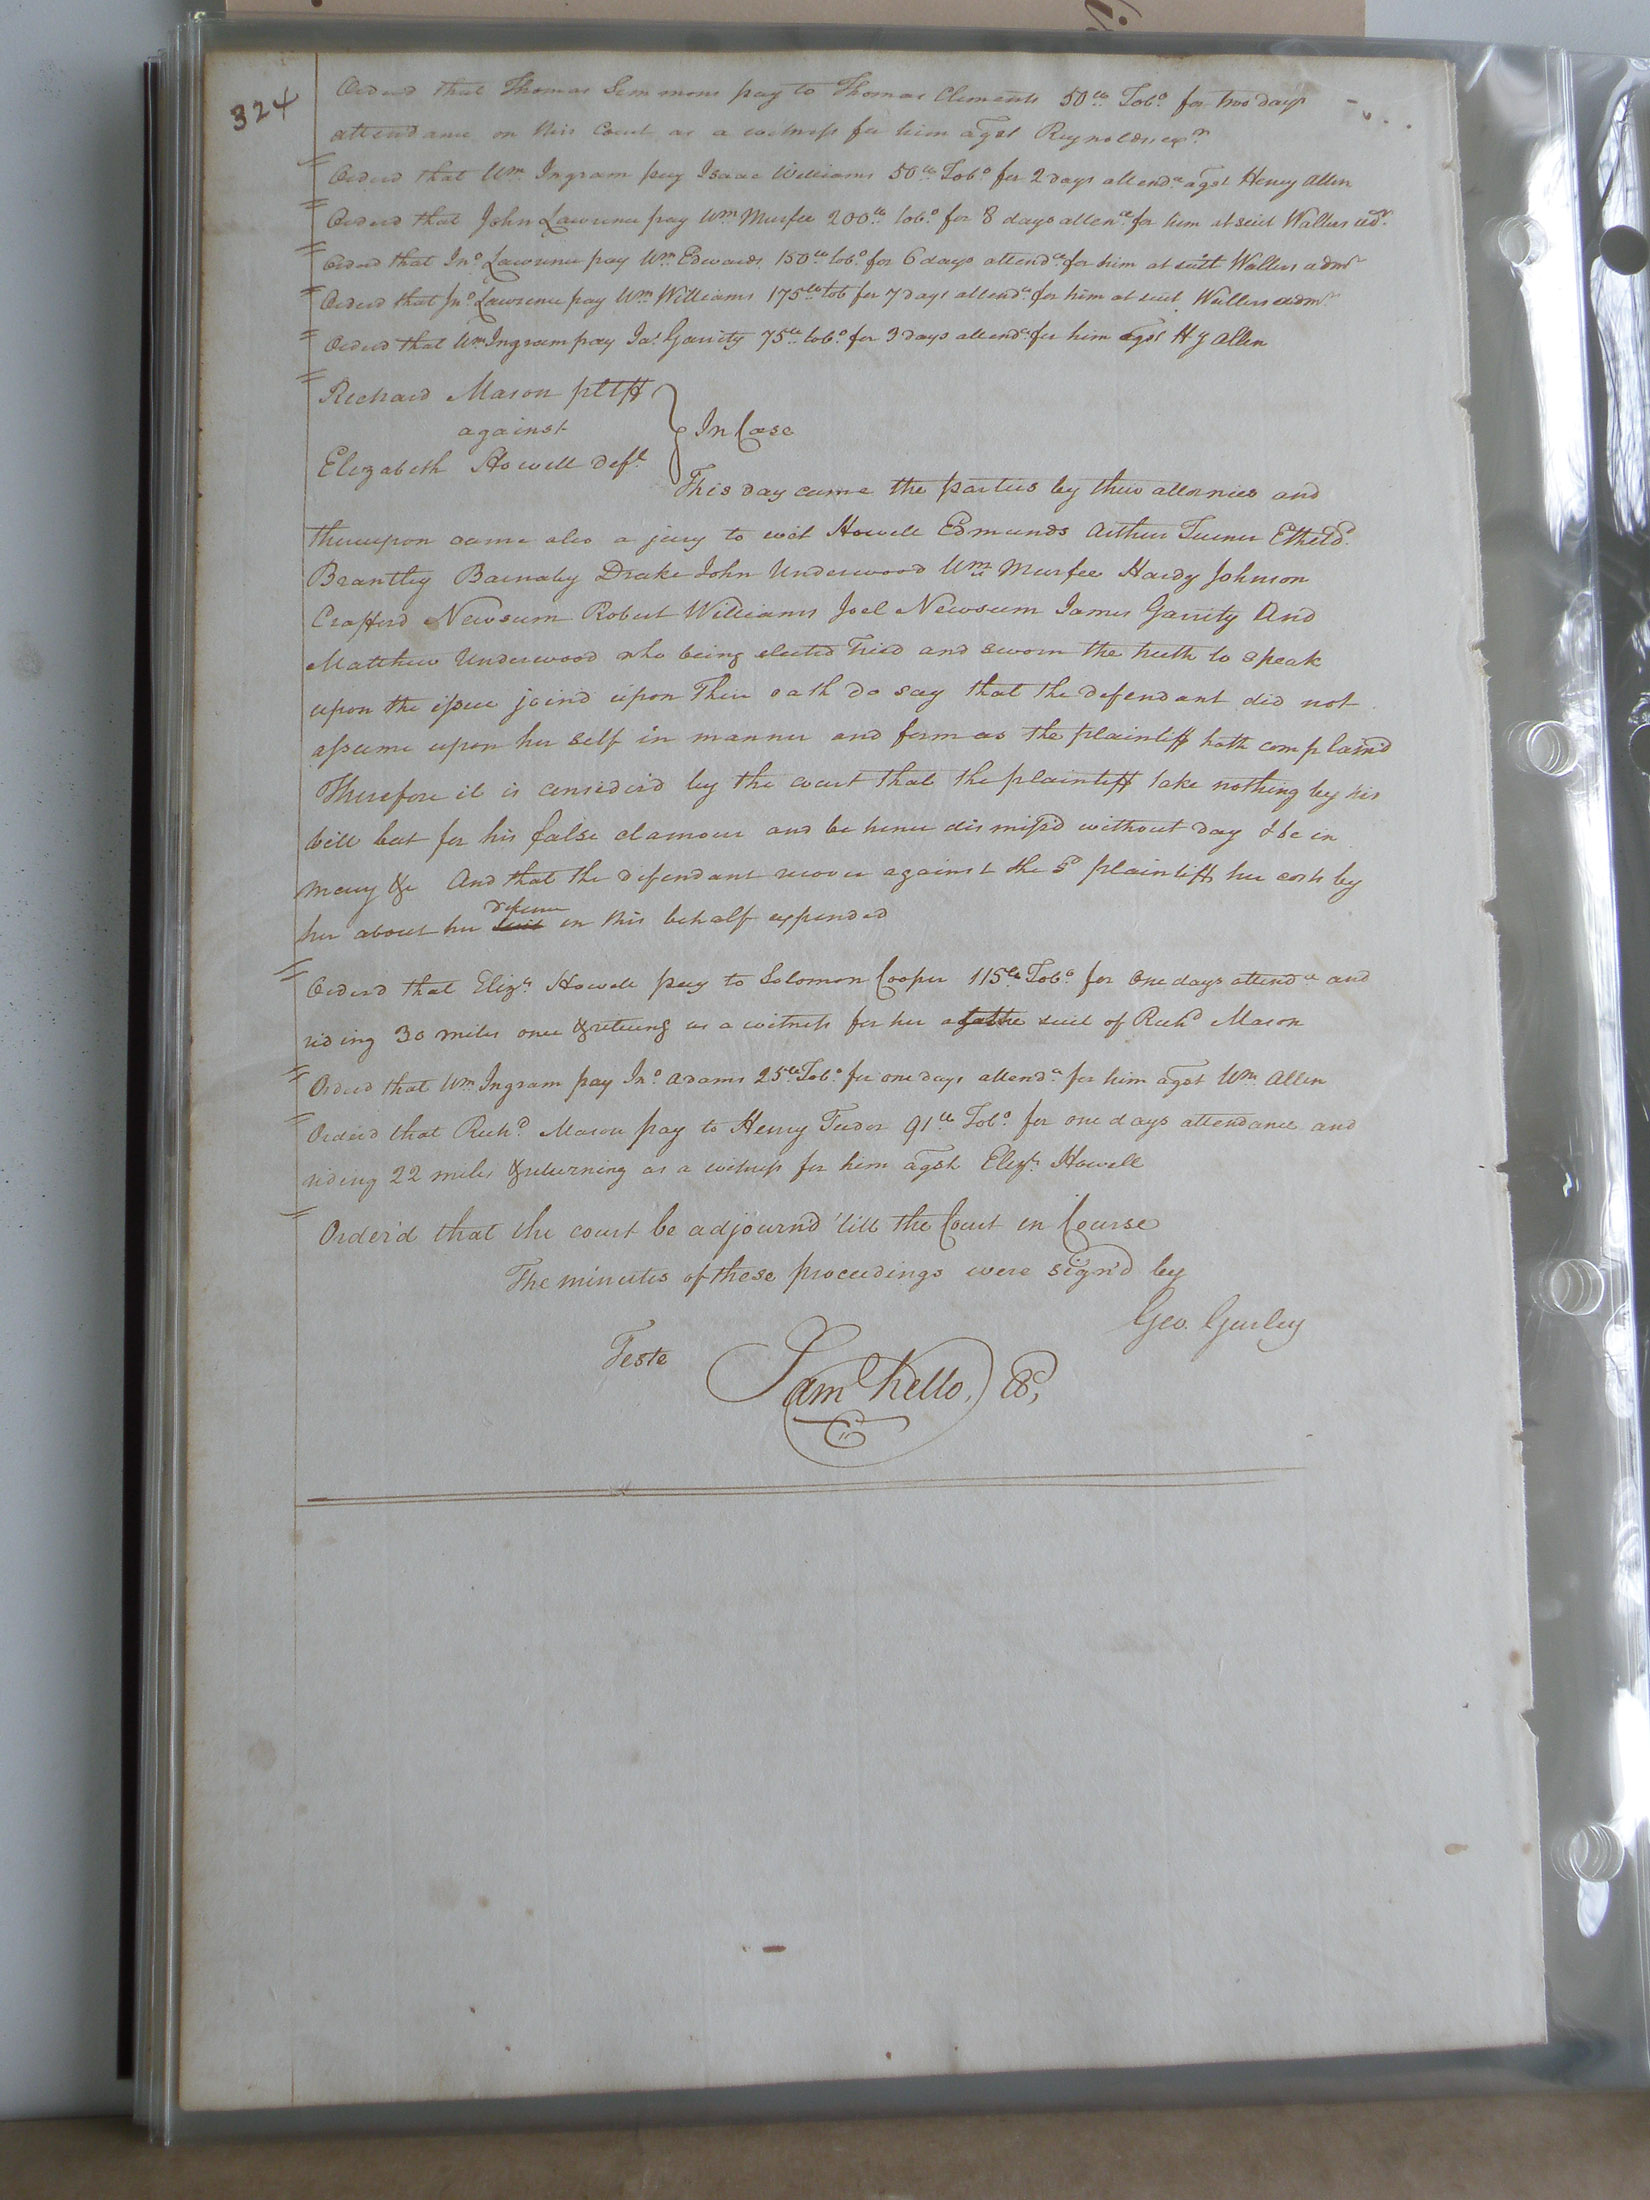 324
Orderd that Thomas Simmons pay to Thomas Clements 50lb Tobo for two days
attendance on this Court as a witness for him agst Reynolds's exr
Orderd that Wm Ingram pay Isaac Williams 50lb Tobo for 2 days attendce agst Henry Allen
Orderd that John Lawrence pay Wm Murfee 200lb tobo for 8 days attence for him at suit Wallers adr
Orderd that Jno Lawrence pay Wm Edwards 150lb tobo for 6 days attendce for him at suit Wallers admr
Orderd that Jno Lawrence pay Wm Williams 175lb tob for 7 days attendce for him at suit Wallers admr
Orderd that Wm Ingram pay Jas Garrity 75lb tobo for 3 days attendce for him agst Hy Allen
Richard Mason pltff
against
In Case
Elizabeth Howell deft
This day came the parties by their attornies and
thereupon came also a jury to wit Howell Edmunds Arthur Turner Etheld
Brantley Barnaby Drake John Underwood Wm Murfee Hardy Johnson
Crafferd Newsum Robert Williams Joel Newsum James Garrity And
Matthew Underwood who being elected Tried and sworn the truth to speak
upon the issue joind upon Their oath do say that the defendant did not
assume upon her self in manner and form as the plaintiff hath complaind
Therefore it is considerd by the court that the plaintiff take nothing by his
bill but for his false clamour and be hence dismiss'd without day & be in
mercy &c And that the defendant recover against the sd plaintiff her costs by
her about her suit defence in this behalf expended
Orderd that Elizh Howell pay to Solomon Cooper 115lb Tobo for One days attendce and
riding 30 miles once & returng as a witness for her at the suit of Richd Mason
Orderd that Wm Ingram pay Jno Adams 25lb Tobo for one days attendce for him agst Wm Allen
Orderd that Richd Mason pay to Henry Tudor 91lb Tobo for one days attendance and
riding 22 miles & returning as a witness for him agst Elizh Howell
Order'd that the court be adjourn'd 'till the Court in Course
The minutes of these proceedings were sign'd by
Geo. Gurley
Teste
Sam Kello, CC,